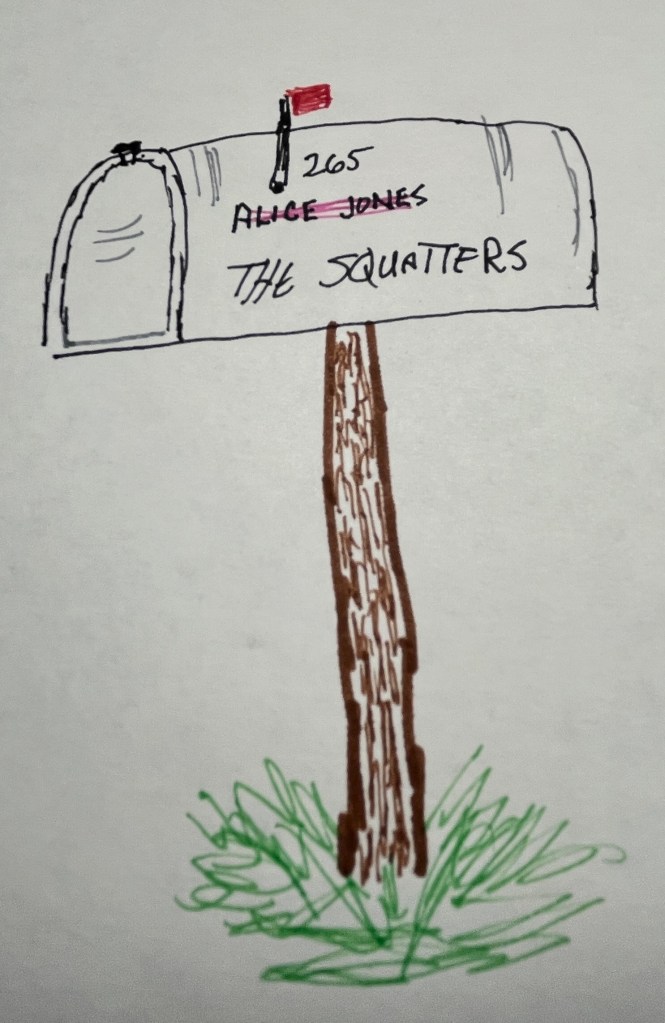 265
ALICE JONES
THE SQUATTERS